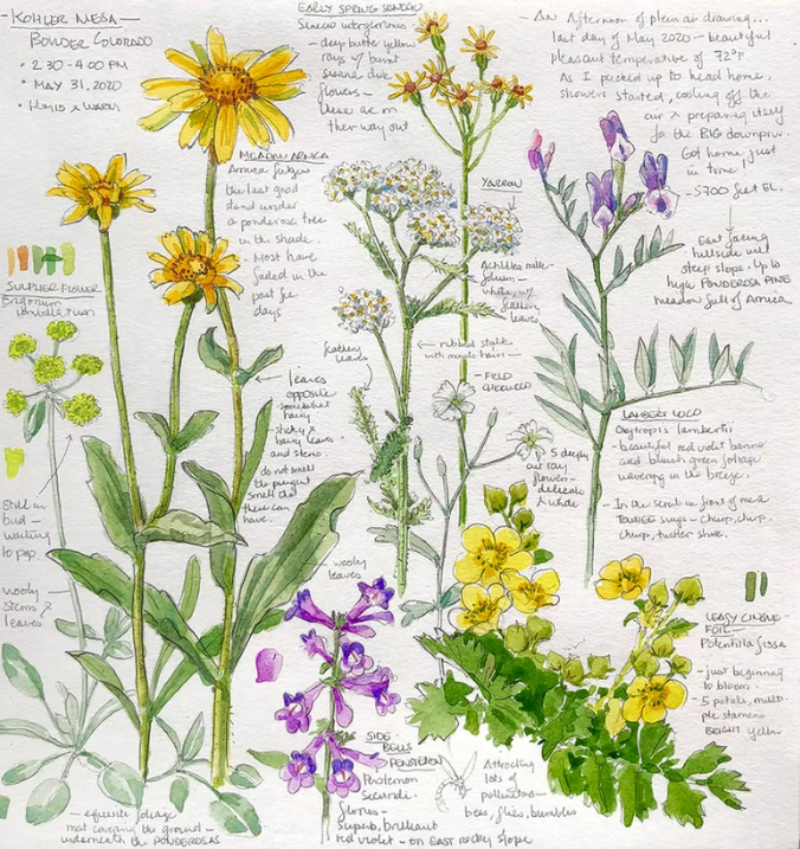 - KOHLER MESA -
BOULDER COLORADO
• 2:30 - 4:00 PM
• MAY 31, 2020
• HUMID & WARM
EARLY SPRING SENECIO
Senecio integerrimus
- deep butter yellow
rays w/ burnt
sienna disk
flowers -
these are on
their way out
- AN Afternoon of plein air drawing...
last day of May 2020 - beautiful
pleasant temperature of 72°F.
As I packed up to head home,
showers started, cooling off the
air & preparing itself
for the BIG downpour.
Got home just
in time!
- 5700 feet EL.
East facing
hillside
steep slope. Up to
high PONDEROSA PINE
meadow full of Arnica
MEADOW ARNICA
Arnica fulgens
the last good
stand under
a ponderosa tree
in the shade.
- Most have
faded in the
past few
days
YARROW
Achillea mille-
folium -
white w/
feathery
leaves
SULPHER FLOWER
Eriogonum
umbellatum
feathery
leaves
ribbed stalk
with hairs -
- FIELD
CHICKWEED
leaves
opposite
somewhat
hairy
- sticky &
hairy leaves
and stems.
do not smell
the pungent
smell that
these can
have.
5 deeply
cut ray
flowers -
delicate
& white
LAMBERT LOCO
Oxytropis lambertii
- beautiful red violet banner
and bluish green foliage
wavering in the breeze.
- In the scrub in front of me a
TOWHEE sings - chirp, chirp,
chirp, twitter
Still in
bud -
waiting
to pop.
wooly
leaves
wooly
stems &
leaves
LEAFY CINQUE
FOIL
Potentilla fissa
- just beginning
to bloom.
- 5 petals, multi-
ple stamens
BRIGHT yellow
SIDE
BELLS
PENSTEMON
Penstemon
secundi-
florus -
superb, brilliant
red violet - on EAST ROCKY slope
Attracting
lots of
pollinators -
bees, flies, bumbles
- exquisite foliage
mat covering the ground -
underneath the PONDEROSAS